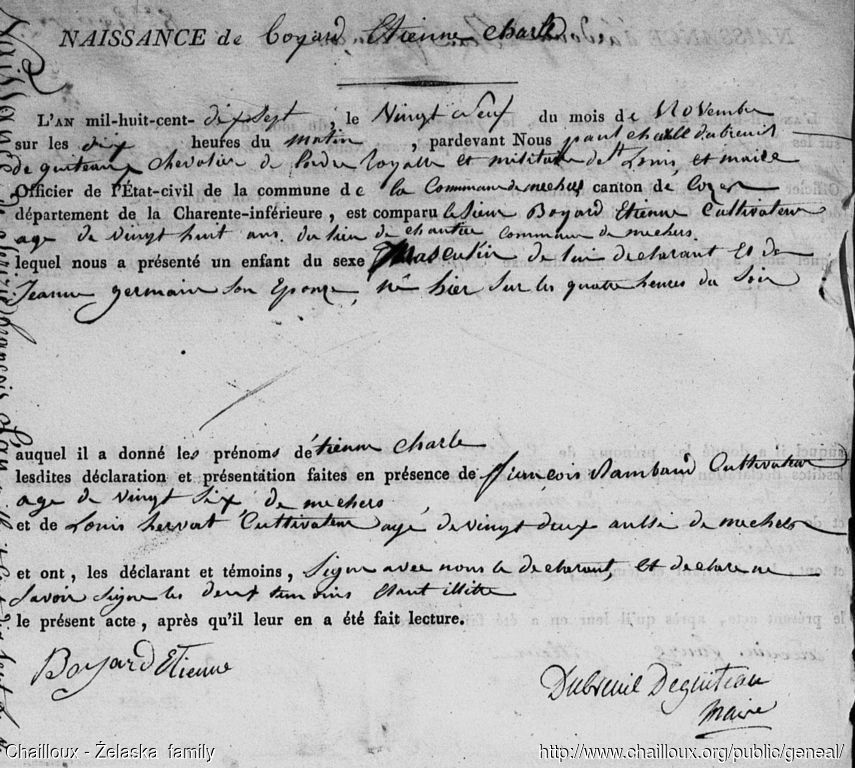 NAISSANCE de Boyard Etienne charle
L'AN mil-huit-cent- dix sept , le Vingt neuf du mois de Novembre
sur les dix heures du matin , pardevant Nous paul charle dubreuil
de guiteau chevalier de l'ordre Royalle et militaire de St Louis, et maire
Officier de l'État-civil de la commune de la Commune de mechers canton de Cozes
département de la Charente-inférieure, est comparu le sieur Boyard Etienne Cultivateur
age de vingt huit ans du lieu de chantier commune de mechers.
lequel nous a présenté un enfant du sexe Masculin de lui declarant et de
Jeanne germain son Epouze, né hier sur les quatre heures du Soir
auquel il a donné les prénoms d'étienne charle
lesdites déclaration et présentation faites en présence de françois Rambaud Cultivateur
age de vingt six, de mechers
et de Louis hervoit Cultivateur agé de vingt deux aussi de mechers
et ont, les déclarant et témoins, Signe avec nous le declarant, et declare ne
Savoir Signe les deux temoins Etant illitre
le présent acte, après qu'il leur en a été fait lecture.
Boyard Etienne
Dubreuil Deguiteau
Maire
Chailloux - Želaska family
http://www.chailloux.org/public/geneal/